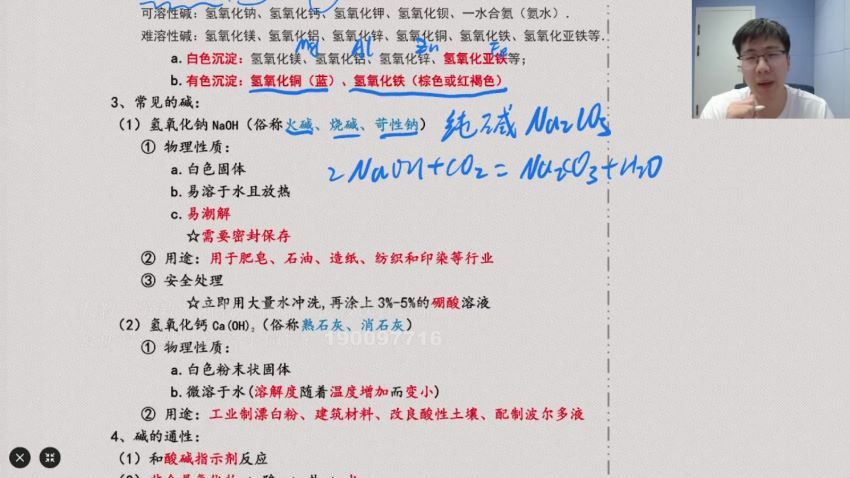 可溶性碱：氢氧化钠、氢氧化钙、氢氧化钾、氢氧化钡、一水合氨（氨水）.
难溶性碱：氢氧化镁、氢氧化铝、氢氧化锌、氢氧化铜、氢氧化铁、氢氧化亚铁等.
Mg Al Zn Fe
a. 白色沉淀：氢氧化镁、氢氧化铝、氢氧化锌、氢氧化亚铁等；
b. 有色沉淀：氢氧化铜（蓝）、氢氧化铁（棕色或红褐色）
3、常见的碱：
（1）氢氧化钠 NaOH（俗称火碱、烧碱、苛性钠） 纯碱 Na₂CO₃
① 物理性质：
2NaOH+CO₂=Na₂CO₃+H₂O
a. 白色固体
b. 易溶于水且放热
c. 易潮解
☆需要密封保存
② 用途：用于肥皂、石油、造纸、纺织和印染等行业
③ 安全处理
☆立即用大量水冲洗,再涂上 3%-5%的硼酸溶液
（2）氢氧化钙 Ca(OH)₂（俗称熟石灰、消石灰）
190097716
① 物理性质：
a. 白色粉末状固体
b. 微溶于水(溶解度随着温度增加而变小)
② 用途：工业制漂白粉、建筑材料、改良酸性土壤、配制波尔多液
4、碱的通性：
（1）和酸碱指示剂反应